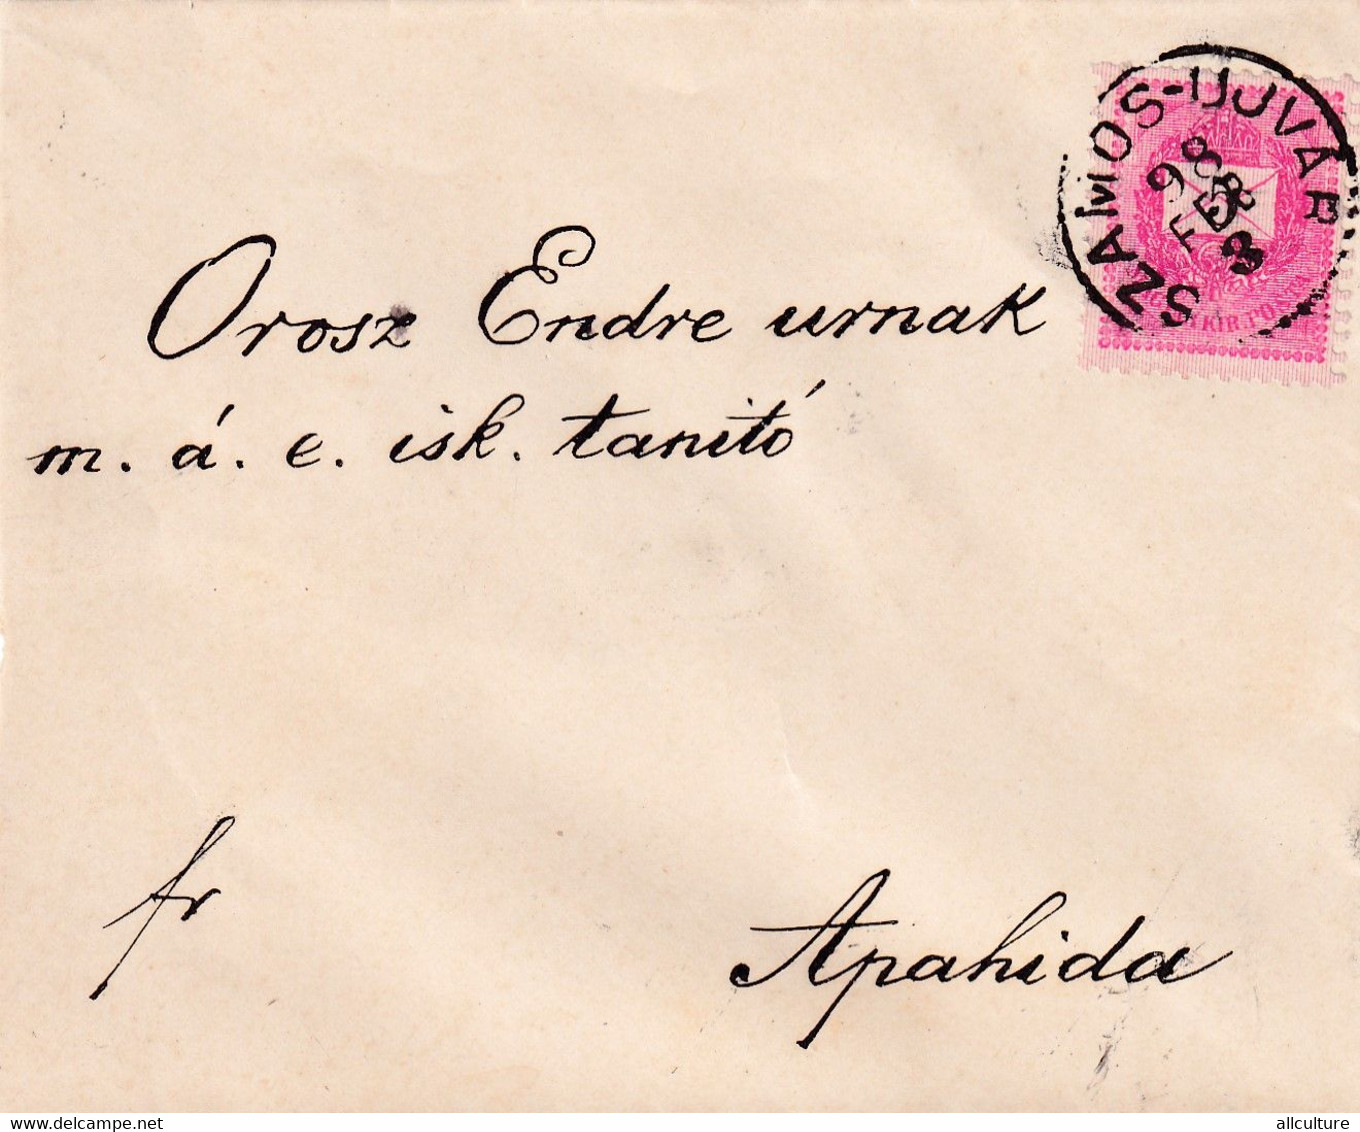 SZAMOS-UJVÁR
98
FEB
3
KIR. POSTA
Orosz Endre urnak
m. á. e. isk. tanitó
fr
Apahida
www.delcampe.net
allculture